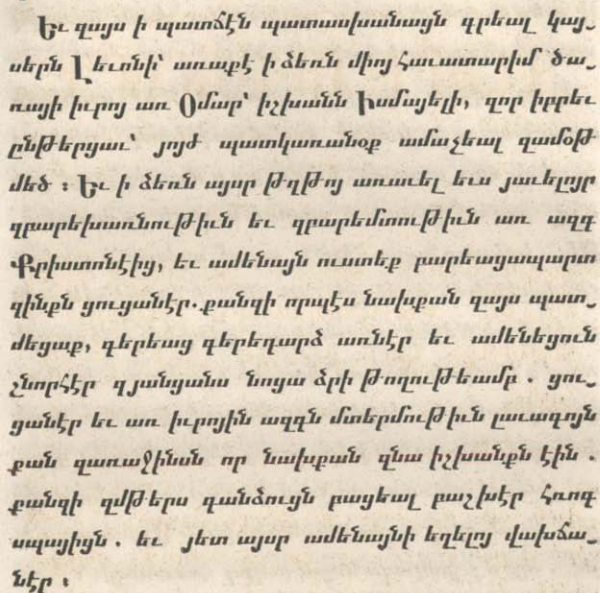 Եւ զայս ի պատճէն պատասխանացն գրեալ կայ֊
սերն Լեւոնի՝ առաքէ ի ձեռն միոյ հաւատարիմ ծա֊
ռայի իւրոյ առ Օմար՝ իշխանն Իսմայելի, զոր իբրեւ
ընթերցաւ՝ յոյժ պատկառանօք ամաչեալ զամօթ
մեծ ։ Եւ ի ձեռն այսր թղթոյ առաւել եւս յաւելոյր
զբարեխառնութիւն եւ զբարեմտութիւն առ ազգ
Քրիստոնէից, եւ ամենայն ուստեք բարեացապարտ
զինքն ցուցանէր. քանզի որպէս նախքան զայս պատ֊
մեցաք, գերեաց գերեդարձ առնէր եւ ամենեցուն
շնորհէր զյանցանս նոցա ձրի թողութեամբ . ցու֊
ցանէր եւ առ իւրոյին ազգն մտերմութիւն լաւագոյն
քան զառաջինսն որ նախքան զնա իշխանքն էին .
քանզի զմթերս գանձուցն բացեալ բաշխէր հռոգ
սպայիցն . եւ յետ այսր ամենայնի եղելոյ վախճա֊
նէր ։